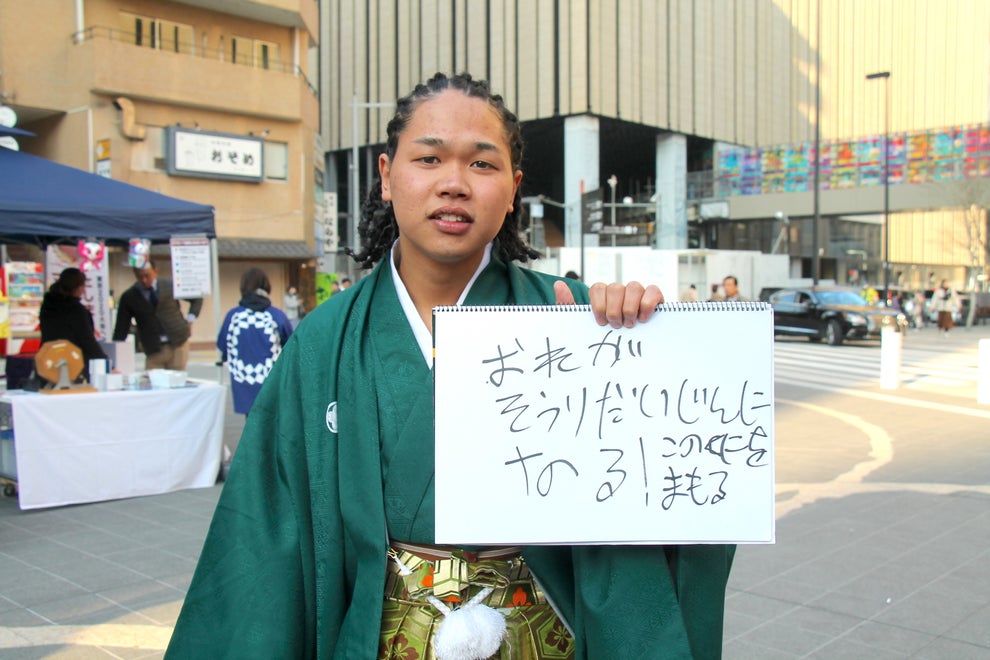 おれが
そうりだいじんに
なる!このくにを
まもる
おそめ